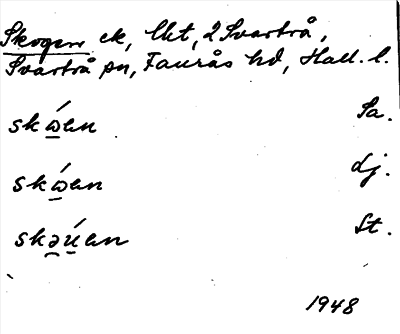 Skogen ek, lht, 2 Svartrå,
Svartrå sn, Faurås hd, Hall. l.
skώ̲an Sa.
skώ̲an dj.
skə̯ú̲an St.
1948